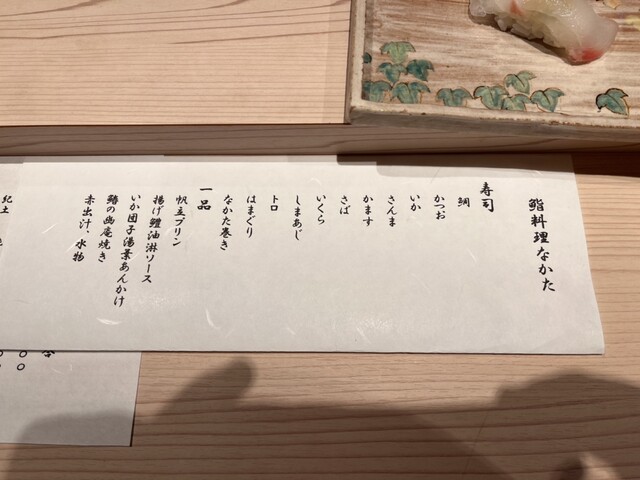 鮨料理なかた
寿司
鯛
かつお
いか
さんま
かます
さば
いくら
しまあじ
トロ
はまぐり
なかた巻き
一品
帆立プリン
揚げ鱧油淋ソース
いか団子湯葉あんかけ
鰆の幽庵焼き
赤出汁、水物
紀土